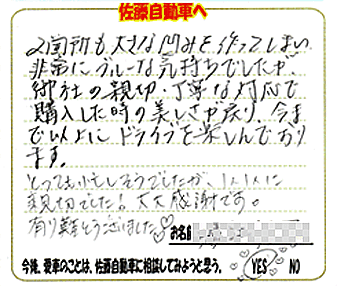 佐藤自動車へ
2箇所も大きな凹みを作ってしまい
非常にブルーな気持ちでしたが、
御社の親切・丁寧な対応で
購入した時の美しさが戻り、今ま
で以上にドライブを楽しんでおり
ます。
とっても忙しそうでしたが、1人1人に
親切でした！大大感謝です。
有り難とうございました♡
お名前
今後、愛車のことは、佐藤自動車に相談してみようと思う。 YES NO